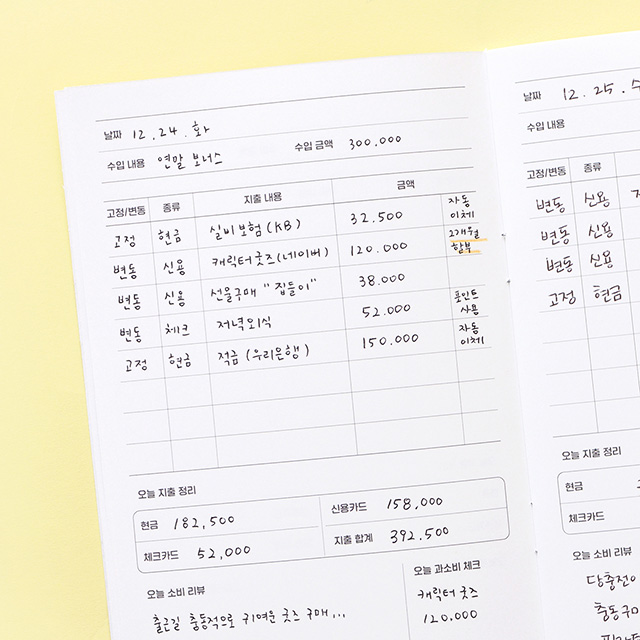 날짜 12.24.화
수입 내용 연말 보너스 수입 금액 300.000
고정/변동 종류 지출 내용 금액
고정 현금 실비보험(KB) 32.500 자동이체
변동 신용 캐릭터굿즈(네이버) 120.000 2개월 할부
변동 신용 선물구매 "집들이" 38.000
변동 체크 저녁외식 52.000 포인트 사용
고정 현금 적금(우리은행) 150.000 자동이체
오늘 지출 정리
현금 182,500 신용카드 158,000
체크카드 52,000 지출 합계 392.500
오늘 소비 리뷰
출근길 충동적으로 귀여운 굿즈 구매...
오늘 과소비 체크
캐릭터 굿즈
120.000
날짜 12.25.수
수입 내용
고정/변동 종류
변동 신용
변동 신용
변동 신용
고정 현금
오늘 지출 정리
현금
체크카드
오늘 소비 리뷰
당충전이
충동구매